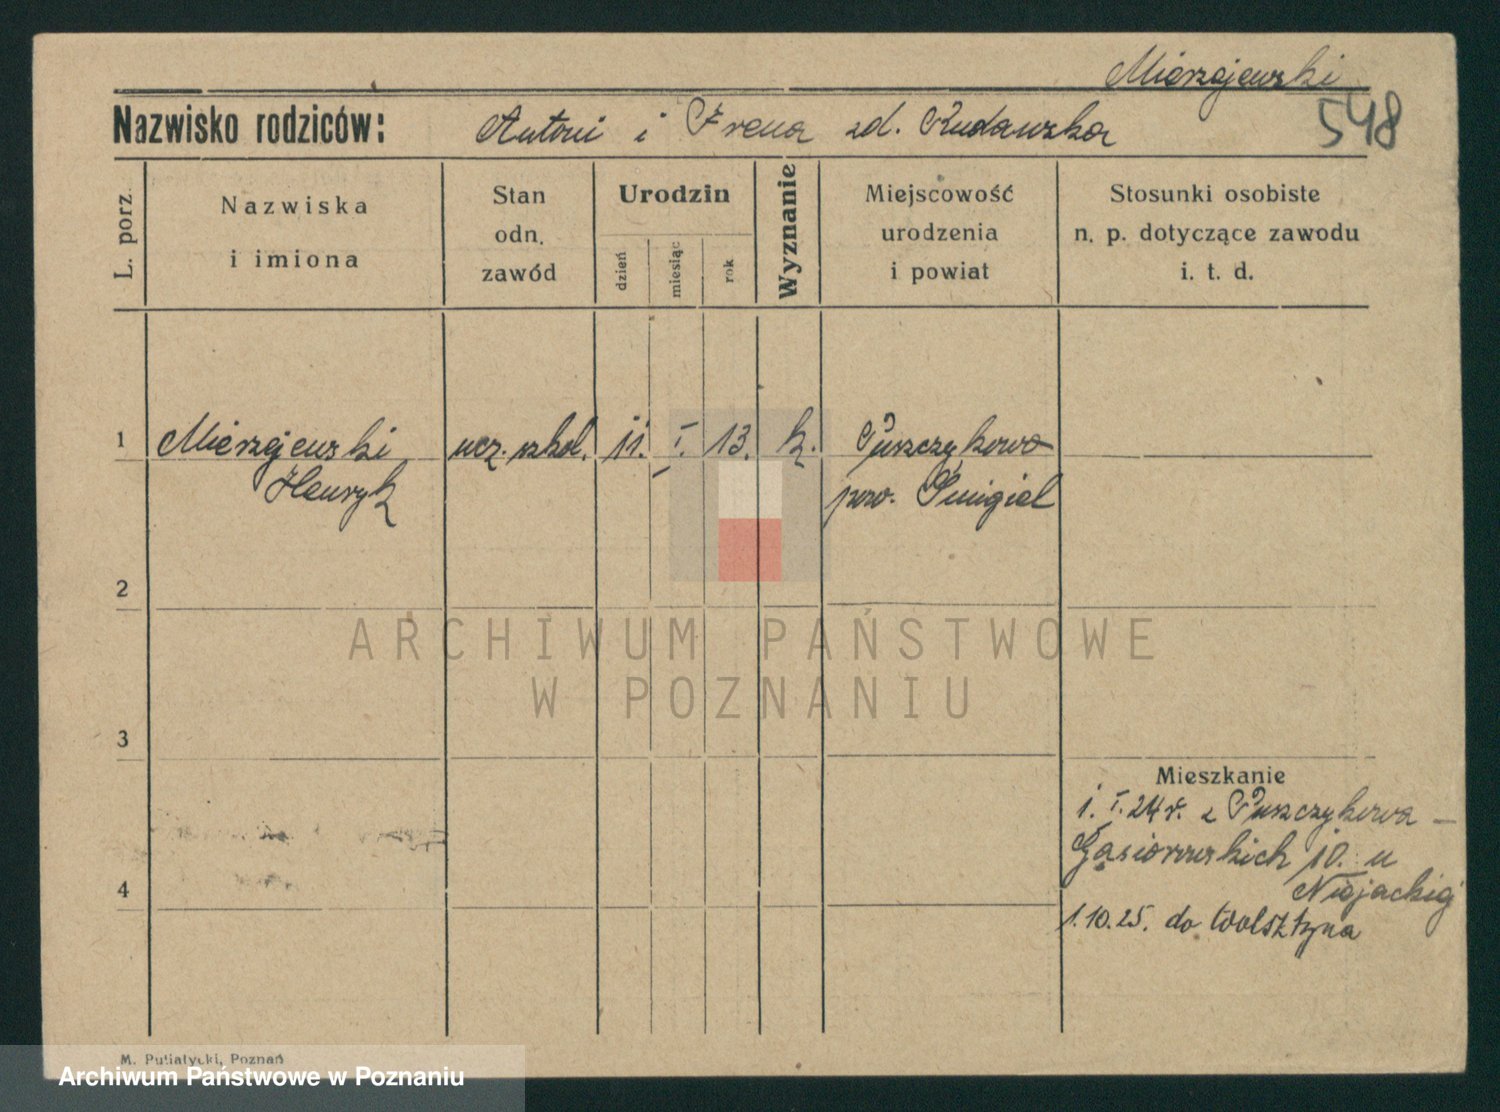 Mierzejewski
Nazwisko rodziców: Antoni i Irena zd. Rudawska
548
L. porz.
Nazwiska i imiona
Stan odn. zawód
Urodzin
dzień
miesiąc
rok
Wyznanie
Miejscowość urodzenia i powiat
Stosunki osobiste n. p. dotyczące zawodu i. t. d.
1 Mierzejewski ucz. szkol. 11. I. 13. k. Puszczykowo
Henryk pow. Śmigiel
2
ARCHIWUM PAŃSTWOWE
W POZNANIU
3
Mieszkanie
1. I. 24 r. z Puszczykowa –
Gąsiorowskich 10. u
4
1.10.25. do Wolsztyna
M. Putiatycki, Poznań
Archiwum Państwowe w Poznaniu